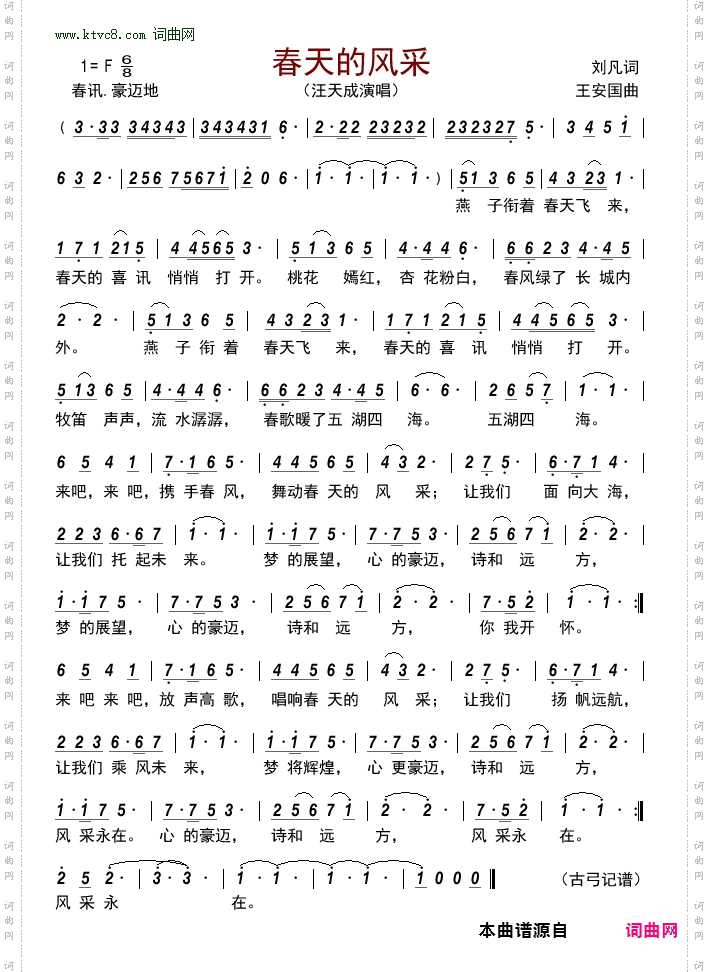 www.ktvc8.com 词曲网
1= F 6/8
春天的风采
刘凡词
春讯.豪迈地
(汪天成演唱)
王安国曲
( 3·33 34343 | 343431 6· | 2·22 23232 | 232327 5· | 3 4 5 1 |
6 3 2· | 256 75671 | 2 0 6· | 1· 1· | 1· 1· ) | 51 3 65 | 43 23 1· |
燕 子衔着 春天飞 来,
171 215 | 44565 3· | 51365 5 | 4·44 6· | 66 2 3 4·45 |
春天的 喜 讯 悄悄 打 开。 桃花 嫣红, 杏 花粉白, 春风绿了 长 城内
2· 2· | 5136 5 | 43 23 1· | 171 215 | 44565 3· |
外。 燕 子 衔 着 春天飞 来, 春天的 喜 讯 悄悄 打 开。
513 65 | 4·44 6· | 6623 4·45 | 6· 6· | 2657· | 1· 1· |
牧笛 声声,流 水潺潺, 春歌暖了五 湖四 海。 五湖四 海。
6 5 4 1 | 7·16 5· | 445 65 | 43 2· | 27 5· | 6·71 4· |
来吧,来 吧,携 手春 风, 舞动春 天的 风 采; 让我们 面 向大 海,
223 6·67 | 1· 1· | 1·17 5· | 7·75 3· | 256 71 | 2· 2· |
让我们 托 起未 来。 梦 的展望, 心 的豪迈, 诗和 远 方,
1·17 5· | 7·75 3· | 256 71 | 2· 2· | 7·52 | 1· 1· :‖
梦 的展望, 心 的豪迈, 诗和 远 方, 你 我开 怀。
6 5 4 1 | 7·16 5· | 445 65 | 43 2· | 27 5· | 6·71 5· |
来 吧 来 吧,放 声高 歌, 唱响春 天的 风 采; 让我们 扬 帆远航,
223 6·67 | 1· 1· | 1·17 5· | 7·75 3· | 256 71 | 2· 2· |
让我们 乘 风未 来, 梦 将辉煌, 心 更豪迈, 诗和 远 方,
1·17 5· | 7·75 3· | 256 75 | 2· 2· | 7·52 | 1· 1· :‖
风 采永在。 心 的豪迈, 诗和 远 方, 风 采永 在。
2 5 2· | 3· 3· | 1· 1· | 1· 1· | 1 0 0 0 ‖
(古弓记谱)
风 采 永 在。
本曲谱源自 词曲网